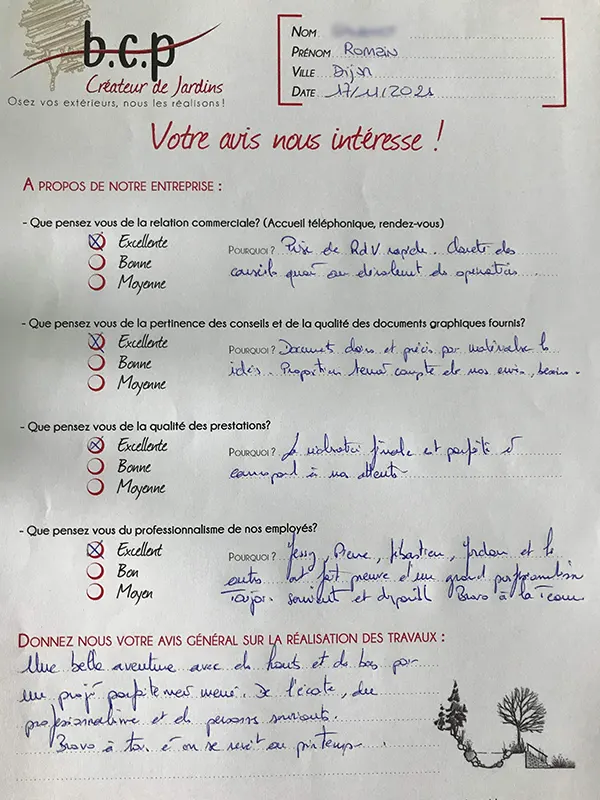 b.c.p
Créateur de Jardins
Osez vos extérieurs, nous les réalisons!
NOM
PRÉNOM Romain
VILLE Dijon
DATE 17/11/2021
Votre avis nous intéresse !
A PROPOS DE NOTRE ENTREPRISE :
- Que pensez vous de la relation commerciale? (Accueil téléphonique, rendez-vous)
Excellente
Bonne
Moyenne
POURQUOI ? Prise de RdV rapide. Clareté des
conseils quant au déroulement des opérations
- Que pensez vous de la pertinence des conseils et de la qualité des documents graphiques fournis?
Excellente
Bonne
Moyenne
POURQUOI ? Documents clairs et précis pour matérialiser les
idées. Proposition tenant compte de nos envies, besoins.
- Que pensez vous de la qualité des prestations?
Excellente
Bonne
Moyenne
POURQUOI ? La réalisation finale est parfaite et
correspond à nos attentes.
- Que pensez vous du professionnalisme de nos employés?
Excellent
Bon
Moyen
POURQUOI ? Jessy, Pierre, Sébastien, Jordan et les
autres ont fait preuve d'un grand professionnalisme
Toujours souriant et disponible Bravo à la Team
DONNEZ NOUS VOTRE AVIS GÉNÉRAL SUR LA RÉALISATION DES TRAVAUX :
Une belle aventure avec des hauts et des bas pour
un projet parfaitement mené. De l'écoute, du
professionnalisme et des personnes souriantes.
Bravo à tous et on se revoit au printemps